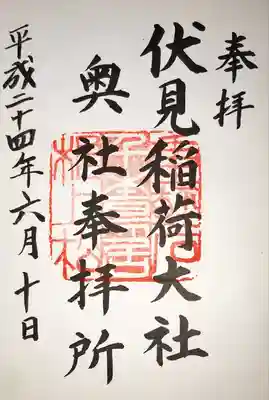 奉拝
伏見稲荷大社
奥社奉拝所
平成二十四年六月十日